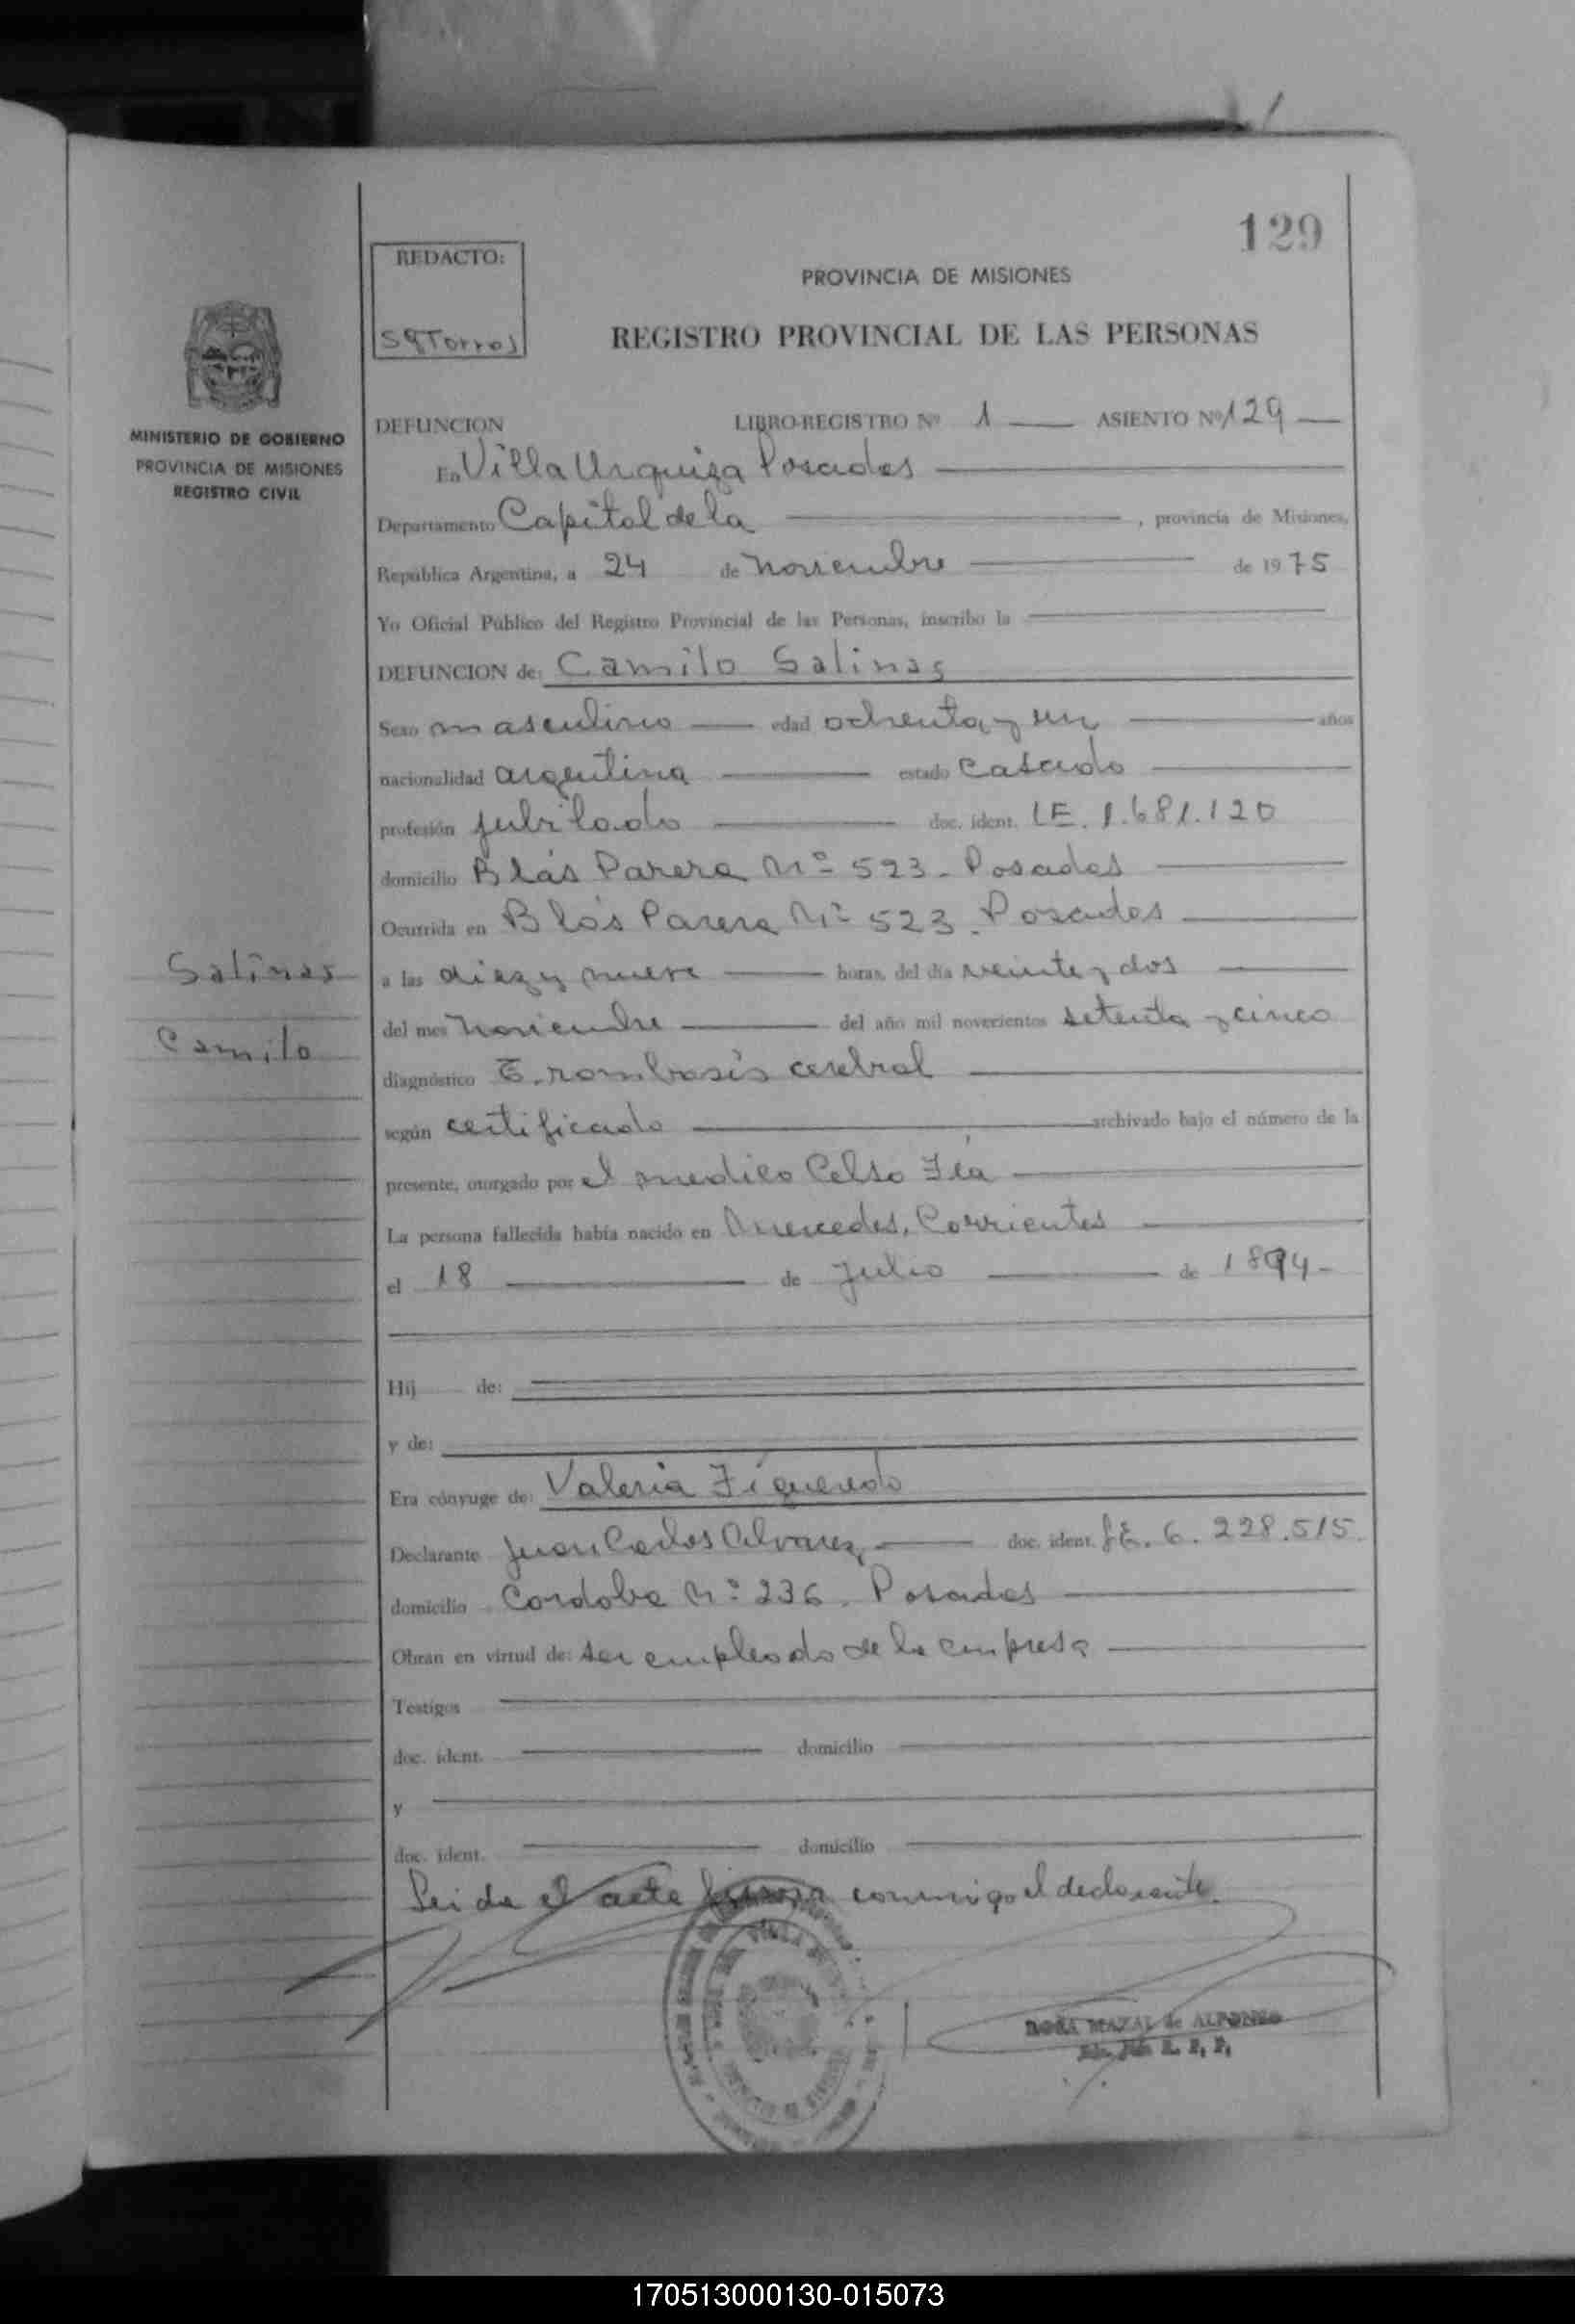 129
REDACTO:
PROVINCIA DE MISIONES
REGISTRO PROVINCIAL DE LAS PERSONAS
MINISTERIO DE GOBIERNO
PROVINCIA DE MISIONES
REGISTRO CIVIL
DEFUNCION LIBRO-REGISTRO Nº 1 ASIENTO Nº 129
En Villa Urquiza Posadas
Departamento Capital de la , provincia de Misiones,
República Argentina, a 24 de noviembre de 1975
Yo Oficial Público del Registro Provincial de las Personas, inscribo la
DEFUNCION de: Camilo Salinas
Sexo masculino edad ochenta y un años
nacionalidad argentina estado Casado
profesión jubilado doc. ident. LE. 1.681.120
domicilio Blás Parera Nº 523 - Posadas
Ocurrida en Blás Parera Nº 523. Posadas
Salinas
Camilo
a las diez y nueve horas, del día veinte y dos
del mes noviembre del año mil novecientos setenta y cinco
diagnóstico Trombosis cerebral
según certificado archivado bajo el número de la
presente, otorgado por el medico Celso
La persona fallecida había nacido en Mercedes, Corrientes
el 18 de Julio de 1894-
Hij de:
y de:
Era cónyuge de: Valeria Figueredo
Declarante Juan Carlos Alvarez doc. ident. LE. 6.228.515
domicilio Cordoba Nº 236. Posadas
Obran en virtud de: ser empleado de la empresa
Testigos
doc. ident. domicilio
y
doc. ident. domicilio
Leida el acta firma conmigo el declarante.
ROSA de ALFONSO
170513000130-015073